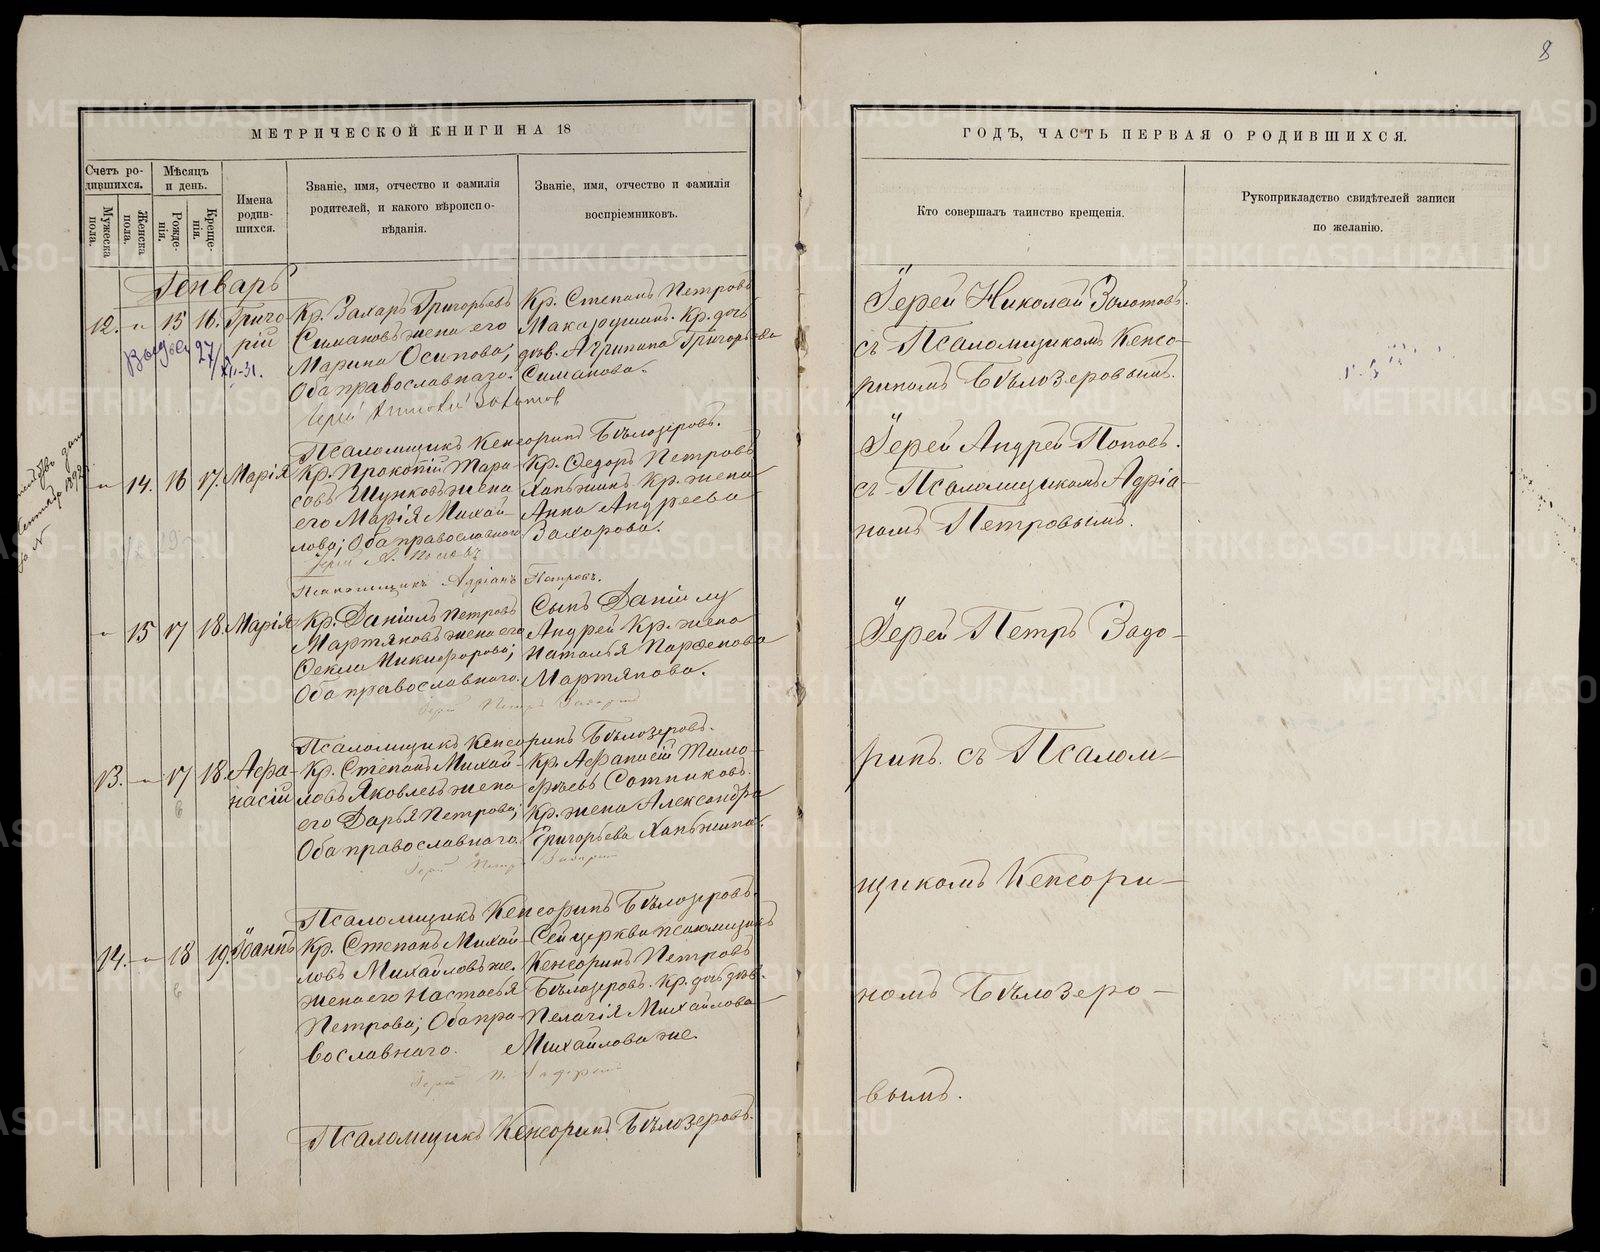 8
МЕТРИЧЕСКОЙ КНИГИ НА 18
ГОДЪ, ЧАСТЬ ПЕРВАЯ О РОДИВШИХСЯ.
Счетъ ро-
дившихся.
Мѣсяцъ
и день.
Мужеска
пола.
Женска
пола.
Рожде-
нія.
Креще-
нія.
Имена
родив-
шихся.
Званіе, имя, отчество и фамилія
родителей, и какого вѣроиспо-
вѣданія.
Званіе, имя, отчество и фамилія
воспріемниковъ.
Кто совершалъ таинство крещенія.
Рукоприкладство свидѣтелей записи
по желанію.
Генварь
12. „ 15 16. Григо
рій
27/XII-31.
Кр. Захаръ Григорьевъ
Симановъ жена его
Марина Осипова;
Оба православнаго.
Кр. Степанъ Петровъ
Кр. дочь
дѣв. Агрипина Григорьева
Симанова.
Іерей Николай Золотовъ.
съ Псаломщикомъ Кенсо-
риномъ Бѣлозеровымъ.
Іерей Николай Золотов
Псаломщикъ Кенсоринъ Бѣлозеровъ.
„ 14. 16 17. Марія
Кр. Прокопій Тара-
совъ Шунковъ жена
его Марія Михай-
лова; Оба православнаго
Кр. Ѳедоръ Петровъ
Кр. жена
Анна Андреева
Захарова.
Іерей Андрей Поповъ.
съ Псаломщикомъ Адріа-
номъ Петровымъ.
Іерей А. Поповъ
Псаломщикъ Адріанъ Петровъ.
„ 15 17 18. Марія
Кр. Даніилъ Петровъ
Мартяновъ жена его
Ѳекла Никифорова;
Оба православнаго.
Сынъ Даніилу
Андрей Кр. жена
Наталья Парфенова
Мартянова.
Іерей Петръ Задо-
Іерей Петръ Задоринъ
Псаломщикъ Кенсоринъ Бѣлозеровъ.
13. „ 17 18. Афа-
насій
Кр. Степанъ Михай-
ловъ Яковлевъ жена
его Дарья Петрова;
Оба православнаго.
Кр. Афанасій Тимо-
фѣевъ Сотниковъ.
Кр. жена Александра
Григорьева
ринъ. съ Псалом-
Іерей Петръ Задоринъ
Псаломщикъ Кенсоринъ Бѣлозеровъ.
щикомъ Кенсори-
14. „ 18 19. Іоаннъ
Кр. Степанъ Михай-
ловъ Михайловъ же.
жена его Настасья
Петрова; Оба пра-
вославнаго.
Сей церкви псаломщикъ
Кенсоринъ Петровъ
Бѣлозеровъ. Кр. дочь дѣв.
Пелагія Михайлова
Михайлова же.
номъ Бѣлозеро-
вымъ.
Іерей П. Задоринъ
Псаломщикъ Кенсоринъ Бѣлозеровъ.
METRIKI.GASO-URAL.RU